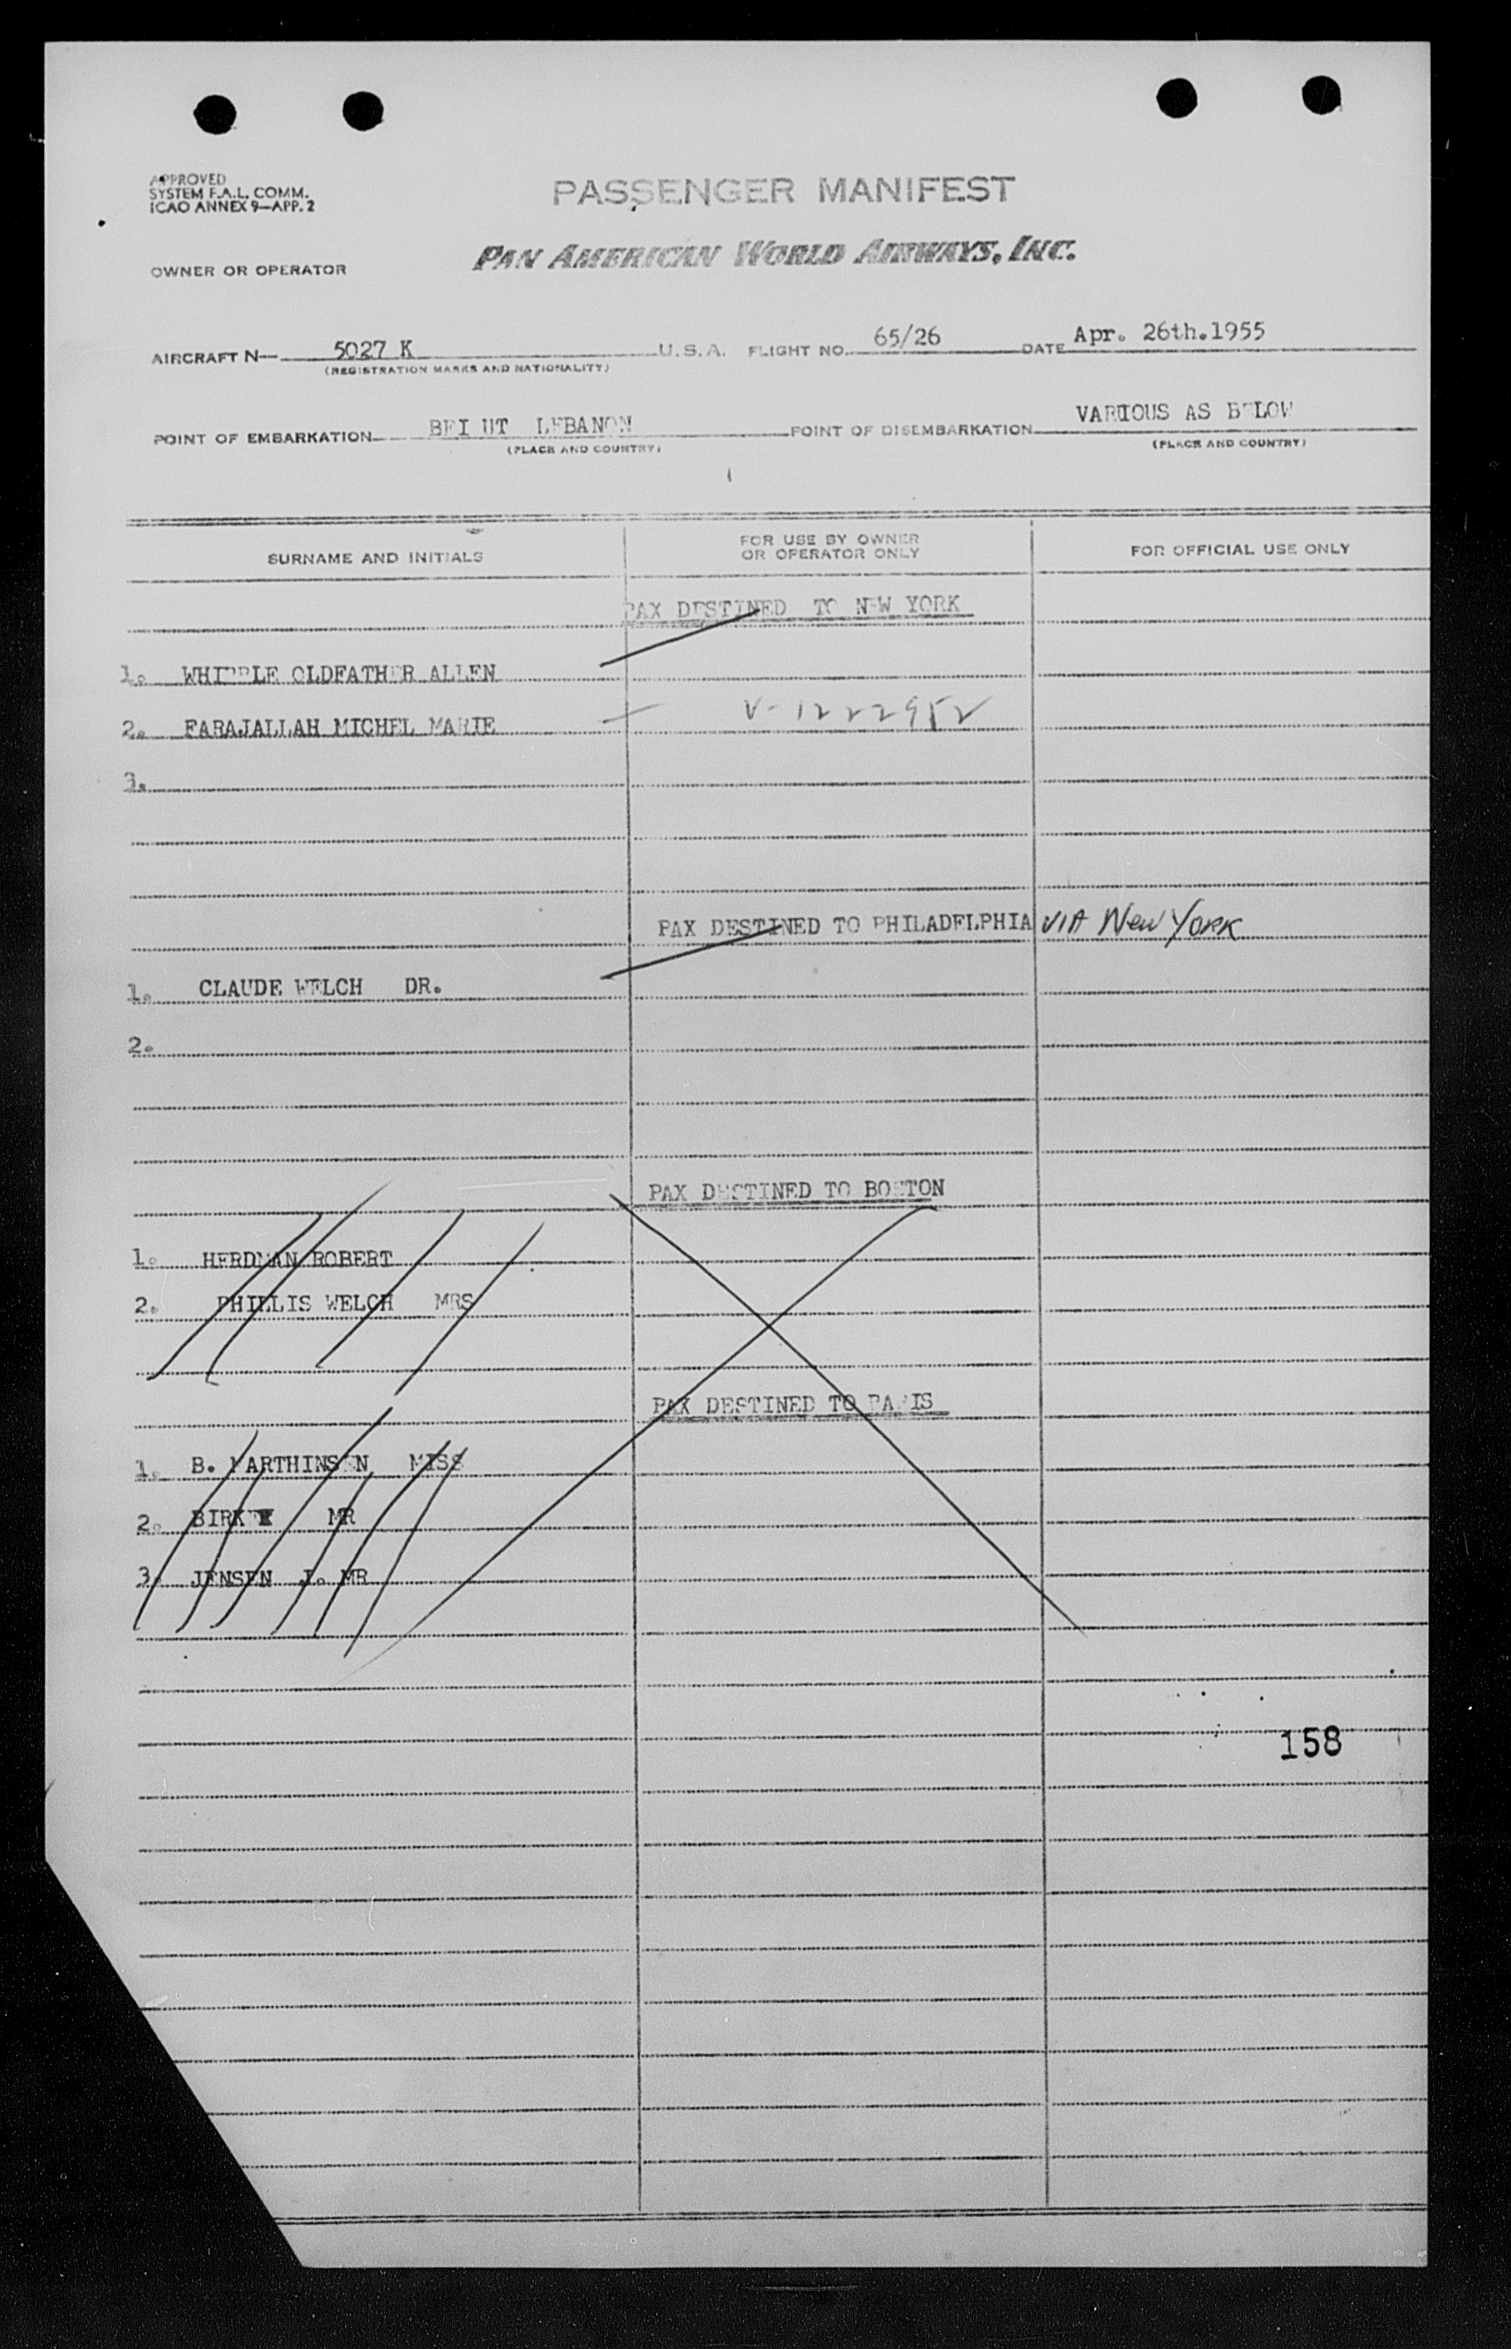 APPROVED
SYSTEM F.A.L. COMM.
ICAO ANNEX 9—APP. 2
PASSENGER MANIFEST
OWNER OR OPERATOR PAN AMERICAN WORLD AIRWAYS, INC.
AIRCRAFT N— 5027 K U.S.A. FLIGHT NO. 65/26 DATE Apr. 26th.1955
(REGISTRATION MARKS AND NATIONALITY)
POINT OF EMBARKATION BEI UT LEBANON POINT OF DISEMBARKATION VARIOUS AS BELOW
(PLACE AND COUNTRY) (PLACE AND COUNTRY)
SURNAME AND INITIALS FOR USE BY OWNER OR OPERATOR ONLY FOR OFFICIAL USE ONLY
PAX DESTINED TO NEW YORK
1. WHIPPLE OLDFATHER ALLEN
2. FARAJALLAH MICHEL MARIE V-1222952
3.
PAX DESTINED TO PHILADELPHIA VIA New York
1. CLAUDE WELCH DR.
2.
PAX DESTINED TO BOSTON
1. HERDMAN ROBERT
2. PHILLIS WELCH MRS
PAX DESTINED TO PARIS
1. B. MARTHINSEN MISS
2. MR
3. JENSEN J. MR
158